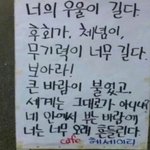 너의 우울이 길다.
후회가, 체념이,
무기력이 너무 길다.
보아라!
큰 바람이 불었고
세계는 그대로가 아니다
네 안에서 부는 바람에
너는 너무 오래 흔들린다
cafe 헤세이티